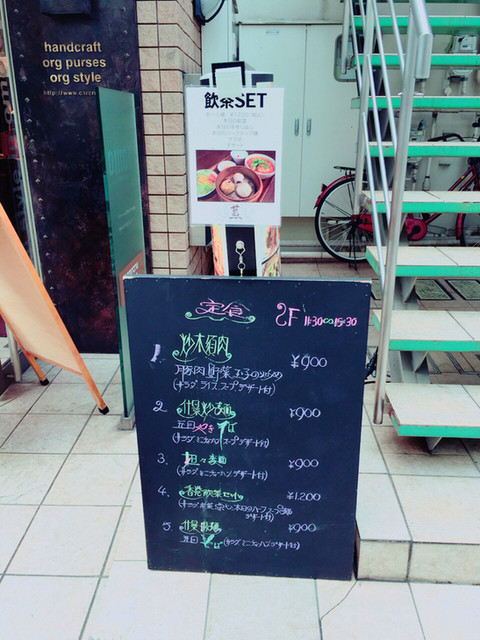 handcraft
org purses
org style
飲茶SET
定食 2F 11:30~15:30
1. 炒木須肉 ¥900
豚肉 野菜 玉子のいため
(サラダ、ライス、スープ、デザート付)
2. 什景炒麺 ¥900
五目やきそば
(サラダ、ミニ スープ デザート付)
3. 担々麺 ¥900
(サラダ ミニチャーハン デザート付)
4. 香港飲茶セット ¥1,200
デザート付)
5. 什景湯麺 ¥900
五目そば (サラダ ミニチャーハン デザート付)